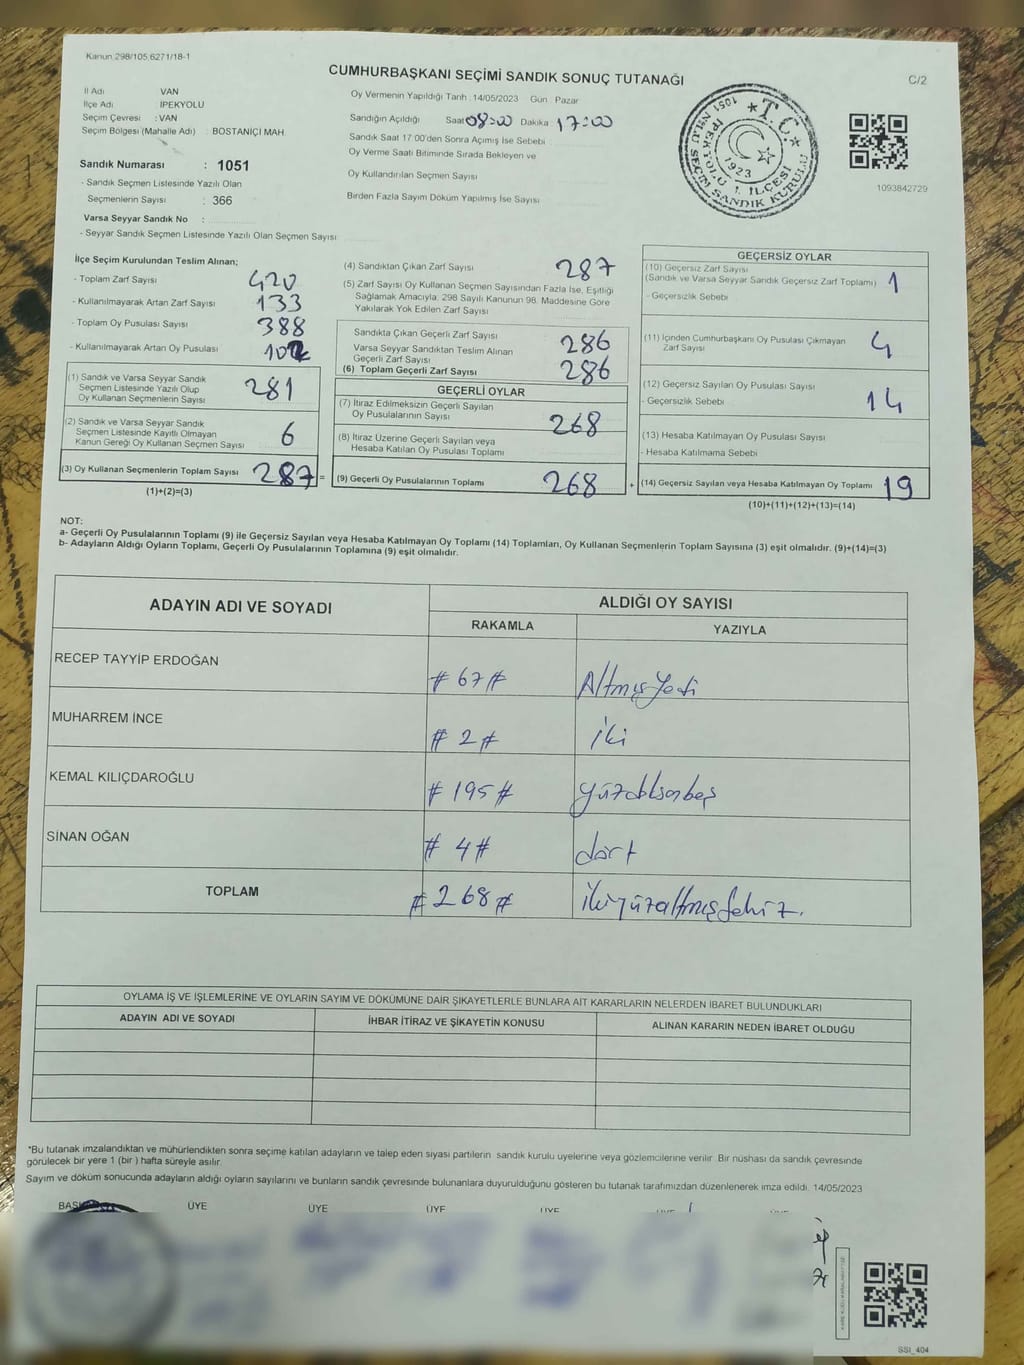 Kanun 298/105,6271/18-1
CUMHURBAŞKANI SEÇİMİ SANDIK SONUÇ TUTANAĞI
C/2
İl Adı VAN
İlçe Adı İPEKYOLU
Seçim Çevresi : VAN
Seçim Bölgesi (Mahalle Adı) : BOSTANİÇİ MAH.
Sandık Numarası : 1051
- Sandık Seçmen Listesinde Yazılı Olan
Seçmenlerin Sayısı : 366
Varsa Seyyar Sandık No :
- Seyyar Sandık Seçmen Listesinde Yazılı Olan Seçmen Sayısı
Oy Vermenin Yapıldığı Tarih : 14/05/2023 Gün : Pazar
Sandığın Açıldığı Saat 08:00 Dakika : 17:00
Sandık Saat 17:00'den Sonra Açımış İse Sebebi
Oy Verme Saati Bitiminde Sırada Bekleyen ve
Oy Kullandırılan Seçmen Sayısı
Birden Fazla Sayım Döküm Yapılmış İse Sayısı
T.C.
İPEKYOLU 1. İLÇESİ
1051 NOLU SEÇİM SANDIK KURULU
1923
1093842729
İlçe Seçim Kurulundan Teslim Alınan;
- Toplam Zarf Sayısı 420
- Kullanılmayarak Artan Zarf Sayısı 133
- Toplam Oy Pusulası Sayısı 388
- Kullanılmayarak Artan Oy Pusulası
(1) Sandık ve Varsa Seyyar Sandık
Seçmen Listesinde Yazılı Olup
Oy Kullanan Seçmenlerin Sayısı 281
(2) Sandık ve Varsa Seyyar Sandık
Seçmen Listesinde Kayıtlı Olmayan
Kanun Gereği Oy Kullanan Seçmen Sayısı 6
(3) Oy Kullanan Seçmenlerin Toplam Sayısı 287 =
(1)+(2)=(3)
(4) Sandıktan Çıkan Zarf Sayısı 287
(5) Zarf Sayısı Oy Kullanan Seçmen Sayısından Fazla İse, Eşitliği
Sağlamak Amacıyla, 298 Sayılı Kanunun 98. Maddesine Göre
Yakılarak Yok Edilen Zarf Sayısı
Sandıkta Çıkan Geçerli Zarf Sayısı 286
Varsa Seyyar Sandıktan Teslim Alınan
Geçerli Zarf Sayısı
(6) Toplam Geçerli Zarf Sayısı 286
GEÇERLİ OYLAR
(7) İtiraz Edilmeksizin Geçerli Sayılan
Oy Pusulalarının Sayısı 268
(8) İtiraz Üzerine Geçerli Sayılan veya
Hesaba Katılan Oy Pusulası Toplamı
(9) Geçerli Oy Pusulalarının Toplamı 268 +
GEÇERSİZ OYLAR
(10) Geçersiz Zarf Sayısı
(Sandık ve Varsa Seyyar Sandık Geçersiz Zarf Toplamı) 1
- Geçersizlik Sebebi
(11) İçinden Cumhurbaşkanı Oy Pusulası Çıkmayan
Zarf Sayısı 4
(12) Geçersiz Sayılan Oy Pusulası Sayısı
- Geçersizlik Sebebi 14
(13) Hesaba Katılmayan Oy Pusulası Sayısı
- Hesaba Katılmama Sebebi
(14) Geçersiz Sayılan veya Hesaba Katılmayan Oy Toplamı 19
(10)+(11)+(12)+(13)=(14)
NOT:
a- Geçerli Oy Pusulalarının Toplamı (9) ile Geçersiz Sayılan veya Hesaba Katılmayan Oy Toplamı (14) Toplamları, Oy Kullanan Seçmenlerin Toplam Sayısına (3) eşit olmalıdır. (9)+(14)=(3)
b- Adayların Aldığı Oyların Toplamı, Geçerli Oy Pusulalarının Toplamına (9) eşit olmalıdır.
ADAYIN ADI VE SOYADI
ALDIĞI OY SAYISI
RAKAMLA YAZIYLA
RECEP TAYYİP ERDOĞAN # 67 # Altmışyedi
MUHARREM İNCE # 2 # iki
KEMAL KILIÇDAROĞLU # 195 # yüzdoksanbeş
SİNAN OĞAN # 4 # dört
TOPLAM # 268 # ikiyüzaltmışsekiz.
OYLAMA İŞ VE İŞLEMLERİNE VE OYLARIN SAYIM VE DÖKÜMÜNE DAİR ŞİKAYETLERLE BUNLARA AİT KARARLARIN NELERDEN İBARET BULUNDUKLARI
ADAYIN ADI VE SOYADI İHBAR İTİRAZ VE ŞİKAYETİN KONUSU ALINAN KARARIN NEDEN İBARET OLDUĞU
*Bu tutanak imzalandıktan ve mühürlendikten sonra seçime katılan adayların ve talep eden siyasi partilerin sandık kurulu üyelerine veya gözlemcilerine verilir. Bir nüshası da sandık çevresinde
görülecek bir yere 1 (bir ) hafta süreyle asılır.
Sayım ve döküm sonucunda adayların aldığı oyların sayılarını ve bunların sandık çevresinde bulunanlara duyurulduğunu gösteren bu tutanak tarafımızdan düzenlenerek imza edildi. 14/05/2023
ÜYE ÜYE ÜYE ÜYE
SSI_404